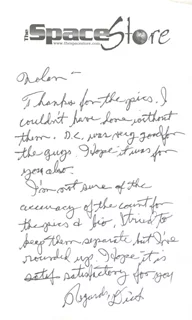 The Space Store
www.thespacestore.com
Nolan —
Thanks for the pics. I
couldn't have done without
them. D.C. was very good for
the guys. I hope it was for
you also.
I'm not sure of the
accuracy of the count for
the pics & bio, I tried to
keep them separate but I've
rounded up. I hope it is
satisfactory for you
Regards, Dick